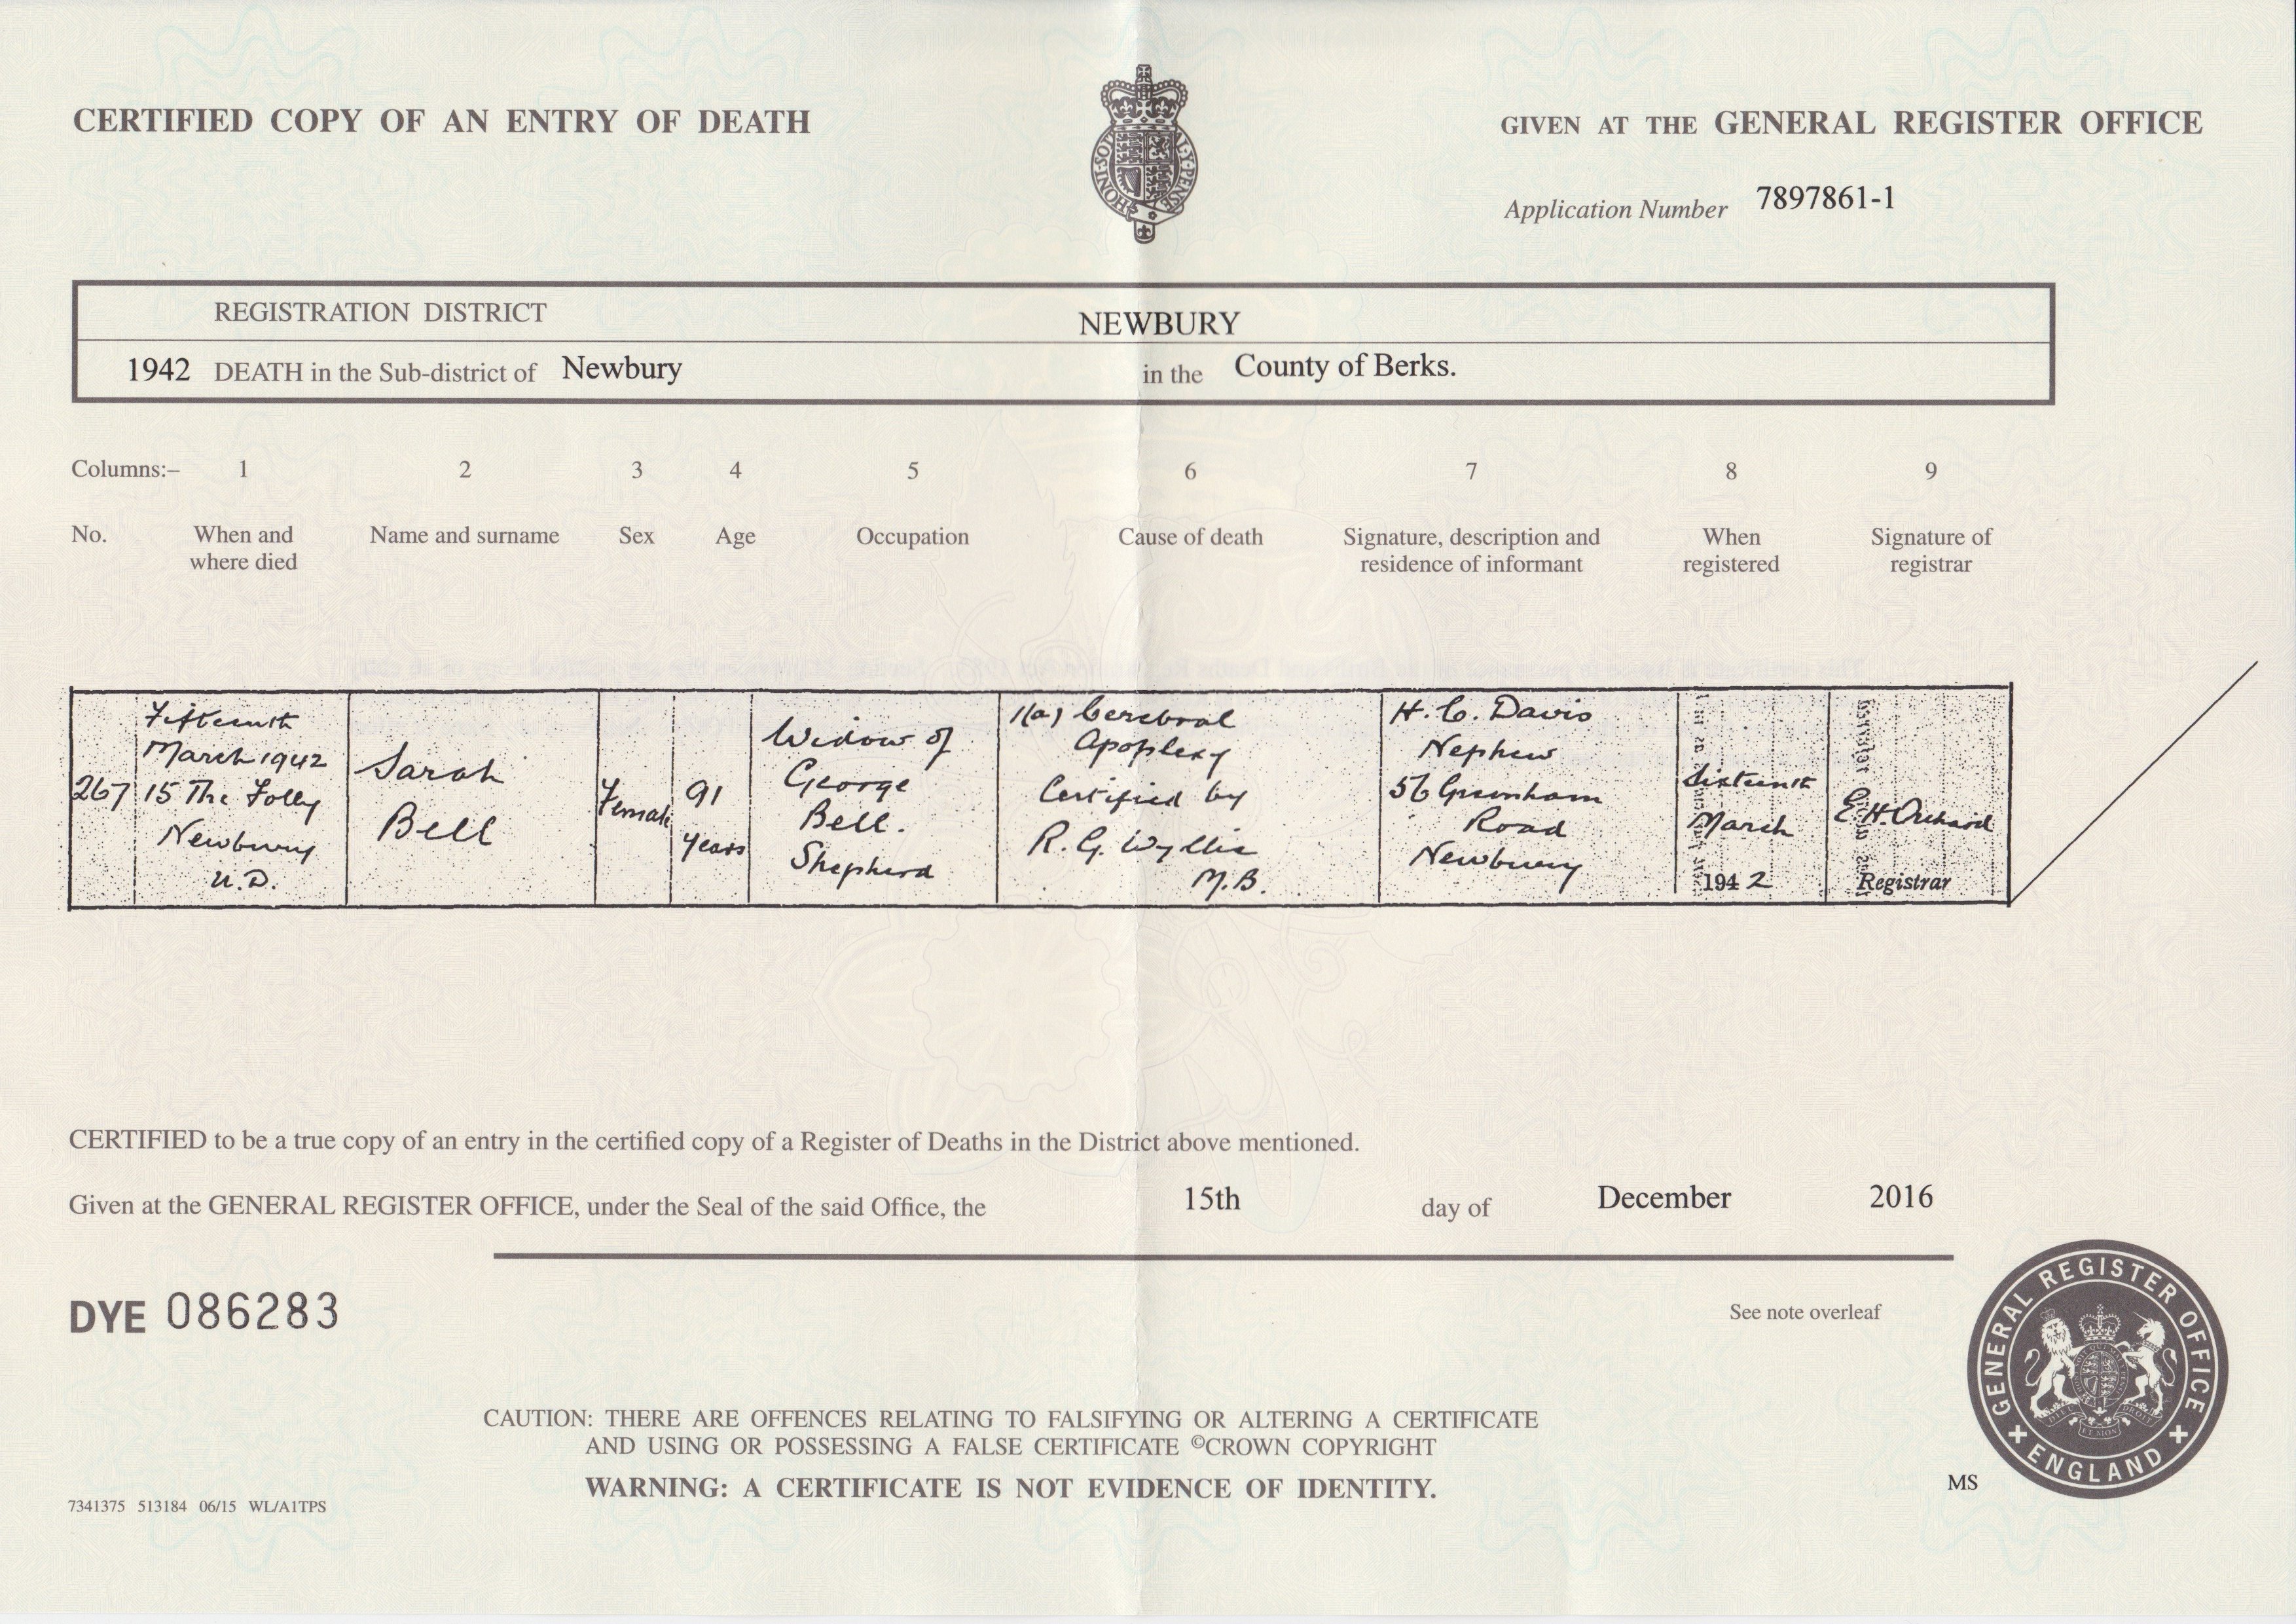 CERTIFIED COPY OF AN ENTRY OF DEATH
GIVEN AT THE GENERAL REGISTER OFFICE
Application Number 7897861-1
REGISTRATION DISTRICT NEWBURY
1942 DEATH in the Sub-district of Newbury in the County of Berks.
Columns:– 1 2 3 4 5 6 7 8 9
No. When and where died
Name and surname
Sex
Age
Occupation
Cause of death
Signature, description and
residence of informant
When
registered
Signature of
registrar
267
Fifteenth
March 1942
15 The Folly
Newbury
U.D.
Sarah
Bell
Female
91
years
Widow of
George
Bell.
Shepherd
1(a) Cerebral
Apoplexy
Certified by
R. G. Wyllie
M.B.
H. C. Davis
Nephew
56 Greenham
Road
Newbury
Sixteenth
March
1942
E. H. Orchard
Registrar
CERTIFIED to be a true copy of an entry in the certified copy of a Register of Deaths in the District above mentioned.
Given at the GENERAL REGISTER OFFICE, under the Seal of the said Office, the 15th day of December 2016
DYE 086283
See note overleaf
CAUTION: THERE ARE OFFENCES RELATING TO FALSIFYING OR ALTERING A CERTIFICATE
AND USING OR POSSESSING A FALSE CERTIFICATE ©CROWN COPYRIGHT
WARNING: A CERTIFICATE IS NOT EVIDENCE OF IDENTITY.
7341375 513184 06/15 WL/A1TPS
MS
GENERAL REGISTER OFFICE
ENGLAND